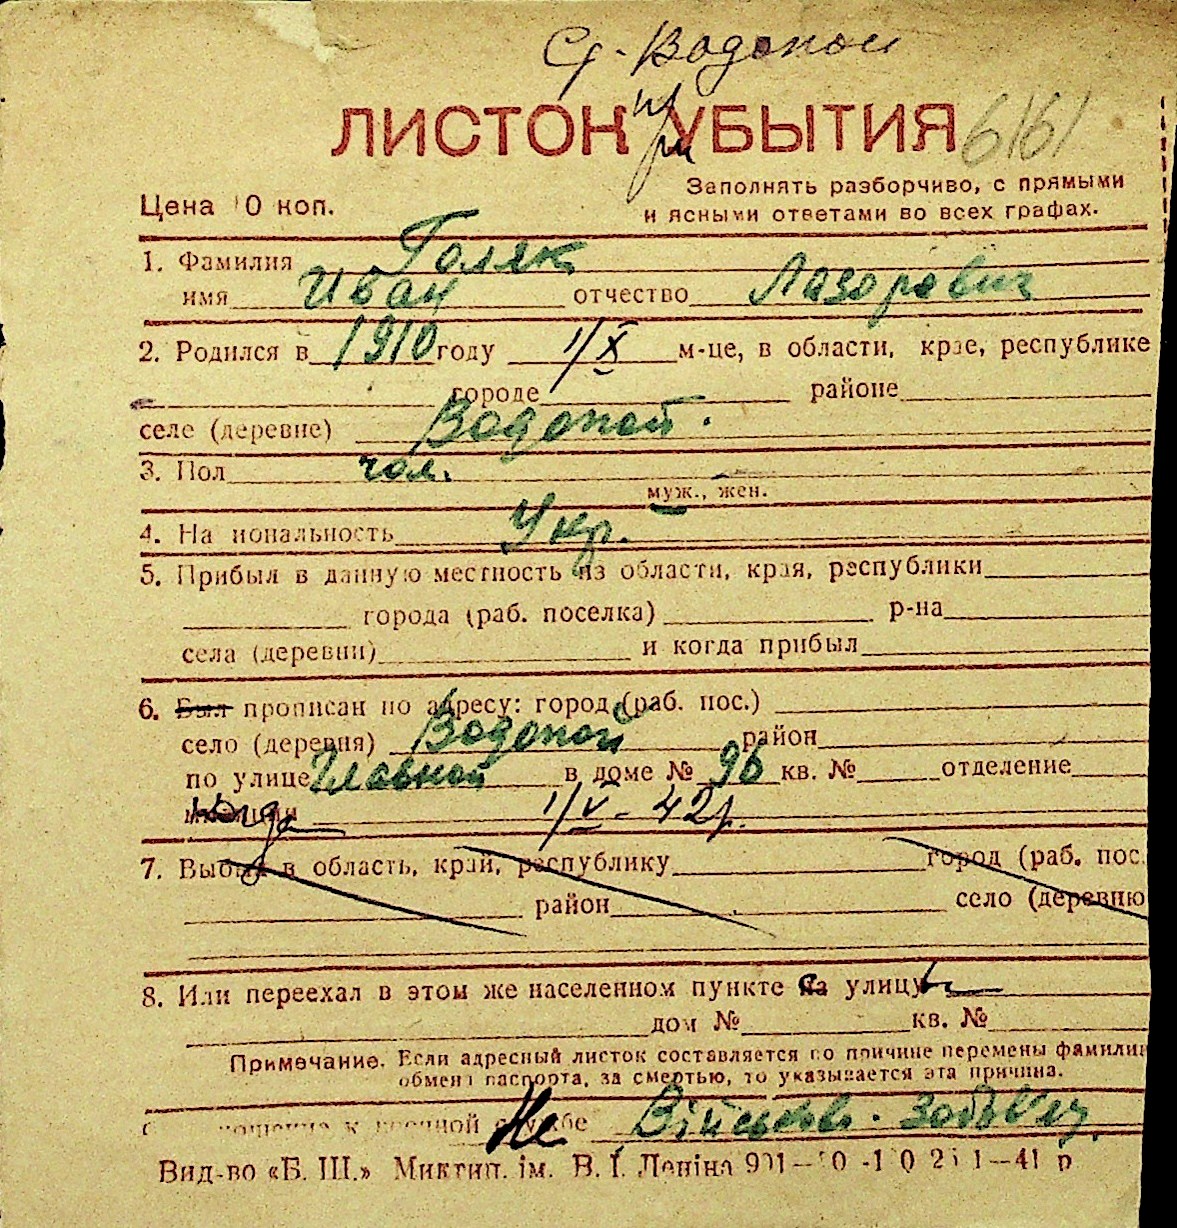 Водопой
ЛИСТОК УБЫТИЯ 6161
Цена 10 коп.
Заполнять разборчиво, с прямыми
и ясными ответами во всех графах.
1. Фамилия Голяк
имя Иван отчество Лазоревич
2. Родился в 1910 году 1/X м-це, в области, крае, республике
городе районе
селе (деревне) Водопой.
3. Пол чол.
муж., жен.
4. Национальность Укр.
5. Прибыл в данную местность из области, края, республики
города (раб. поселка) р-на
села (деревни) и когда прибыл
6. Был прописан по адресу: город (раб. пос.)
село (деревня) Водопой район
по улице Главной в доме № 96 кв. № отделение
милиции когда 1/V-42р.
7. Выбыл в область, край, республику город (раб. пос.
район село (деревню
8. Или переехал в этом же населенном пункте на улицу
дом № кв. №
Примечание. Если адресный листок составляется по причине перемены фамилии
обмена паспорта, за смертью, то указывается эта причина.
отношение к военной службе Не Військово. зобов'яз.
Вид-во «Б. Ш.» Миктип. ім. В. І. Леніна